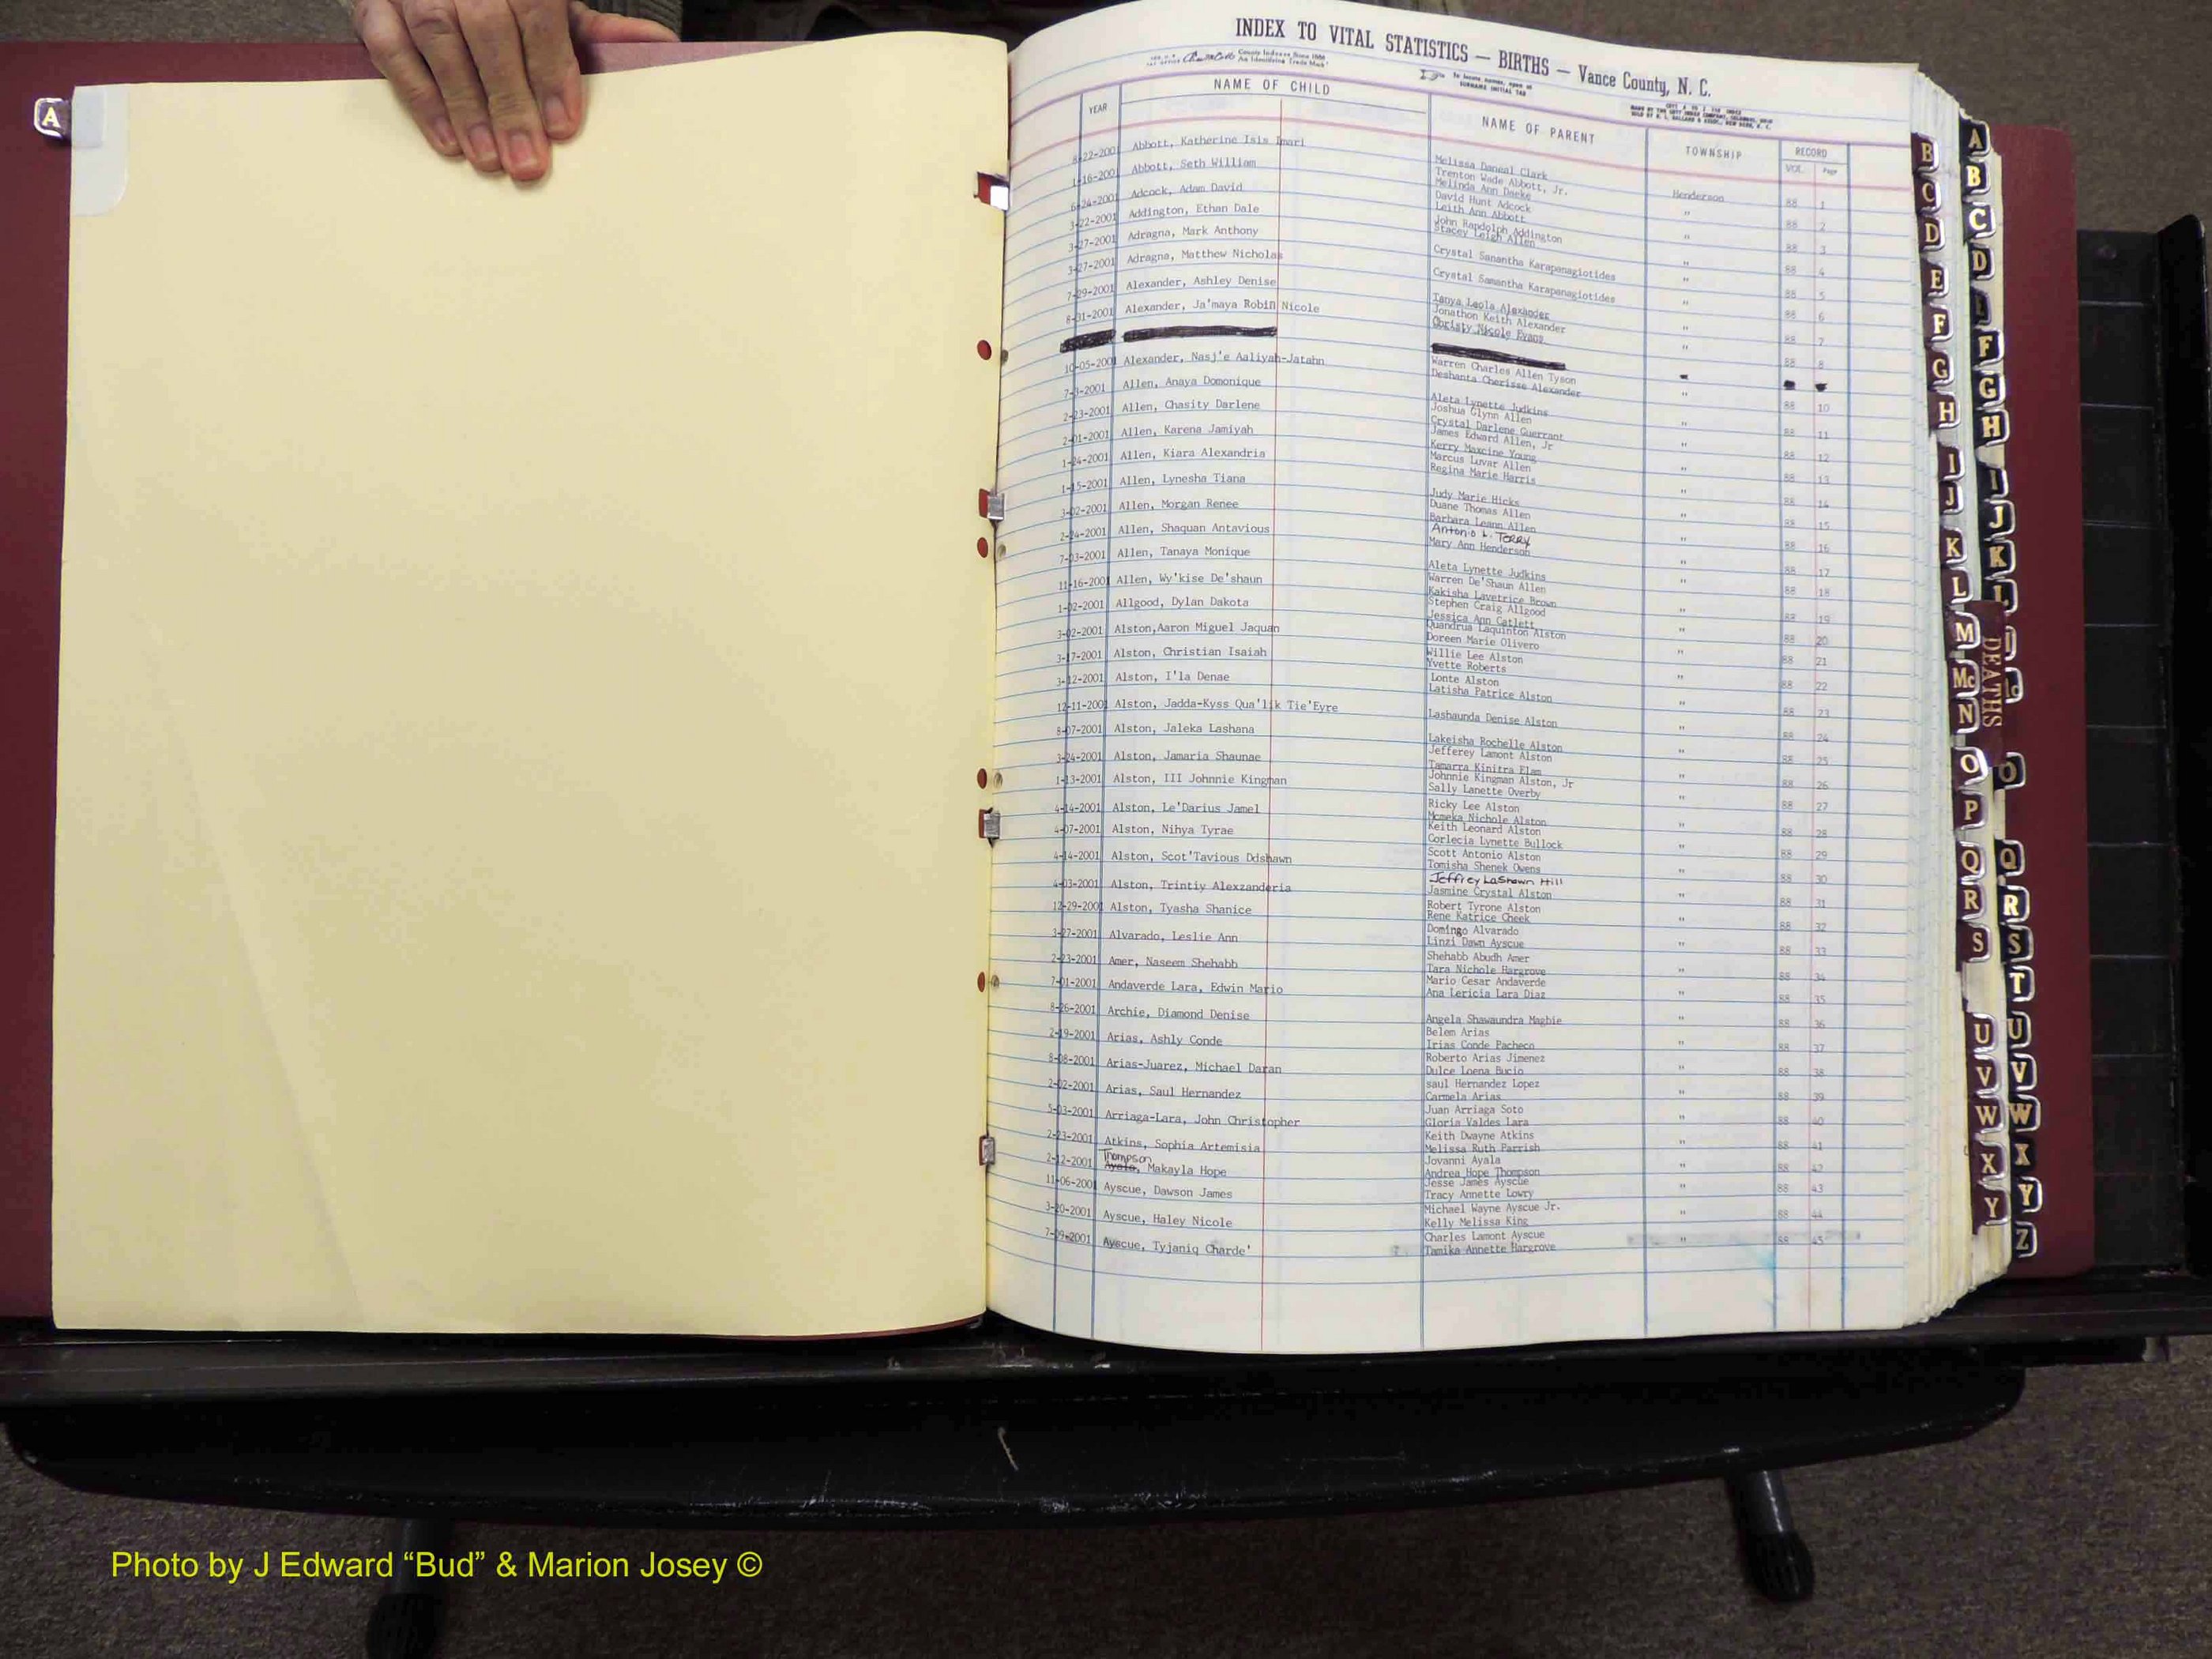 A
INDEX TO VITAL STATISTICS — BIRTHS — Vance County, N. C.
County Indexes Since 1888
An Identifying Trade Mark
To locate names, open at
SURNAME INITIAL TAB
YEAR NAME OF CHILD NAME OF PARENT TOWNSHIP RECORD
VOL. Page
8-22-2001 Abbott, Katherine Isis Imari Melissa Daneal Clark Henderson 88 1
1-16-200 Abbott, Seth William Trenton Wade Abbott, Jr. " 88 2
Melinda Ann Dacke
6-24-2001 Adcock, Adam David David Hunt Adcock " 88 3
Leith Ann Abbott
3-22-2001 Addington, Ethan Dale John Randolph Addington " 88 4
Stacey Leigh Allen
3-27-2001 Adragna, Mark Anthony Crystal Sanantha Karapanagiotides " 88 5
3-27-2001 Adragna, Matthew Nicholas Crystal Samantha Karapanagiotides " 88 6
7-29-2001 Alexander, Ashley Denise Tanya Leola Alexander " 88 7
8-31-2001 Alexander, Ja'maya Robin Nicole Jonathon Keith Alexander " 88 8
Christy Nicole Evans
10-05-200 Alexander, Nasj'e Aaliyah-Jatahn Warren Charles Allen Tyson " 88 10
Deshanta Cherisse Alexander
7-3-2001 Allen, Anaya Domonique Aleta Lynette Judkins " 88 11
2-23-2001 Allen, Chasity Darlene Joshua Glynn Allen " 88 12
Crystal Darlene Guerrant
2-01-2001 Allen, Karena Jamiyah James Edward Allen, Jr " 88 13
Kerry Maxcine Young
1-24-2001 Allen, Kiara Alexandria Marcus Luvar Allen " 88 14
Regina Marie Harris
1-15-2001 Allen, Lynesha Tiana Judy Marie Hicks " 88 15
3-02-2001 Allen, Morgan Renee Duane Thomas Allen " 88 16
Barbara Leann Allen
2-24-2001 Allen, Shaquan Antavious Antonio L. Terry " 88 17
Mary Ann Henderson
7-03-2001 Allen, Tanaya Monique Aleta Lynette Judkins " 88 18
11-16-200 Allen, Wy'kise De'shaun Warren De'Shaun Allen " 88 19
Kakisha Lavetrice Brown
1-02-2001 Allgood, Dylan Dakota Stephen Craig Allgood " 88 20
Jessica Ann Catlett
3-02-2001 Alston,Aaron Miguel Jaquan Quandrus Laquinton Alston " 88 21
Doreen Marie Olivero
3-17-2001 Alston, Christian Isaiah Willie Lee Alston " 88 22
Yvette Roberts
3-12-2001 Alston, I'la Denae Lonte Alston " 88 23
Latisha Patrice Alston
12-11-200 Alston, Jadda-Kyss Qua'lik Tie'Eyre Lashaunda Denise Alston " 88 24
8-07-2001 Alston, Jaleka Lashana Lakeisha Rochelle Alston " 88 25
3-24-2001 Alston, Jamaria Shaunae Jefferey Lamont Alston " 88 26
Tamarra Kinitra Elam
1-13-2001 Alston, III Johnnie Kingman Johnnie Kingman Alston, Jr " 88 27
Sally Lanette Overby
4-14-2001 Alston, Le'Darius Jamel Ricky Lee Alston " 88 28
Nichole Alston
4-07-2001 Alston, Nihya Tyrae Keith Leonard Alston " 88 29
Corlecia Lynette Bullock
4-14-2001 Alston, Scot'Tavious Ddshawn Scott Antonio Alston " 88 30
Tomisha Shenek Owens
4-03-2001 Alston, Trintiy Alexzanderia Jeffrey LaShawn Hill " 88 31
Jasmine Crystal Alston
12-29-200 Alston, Tyasha Shanice Robert Tyrone Alston " 88 32
Rene Katrice Cheek
3-27-2001 Alvarado, Leslie Ann Domingo Alvarado " 88 33
Linzi Dawn Ayscue
2-23-2001 Amer, Naseem Shehabb Shehabb Abudh Amer " 88 34
Tara Nichole Hargrove
7-01-2001 Andaverde Lara, Edwin Mario Mario Cesar Andaverde " 88 35
Ana Lericia Lara Diaz
8-26-2001 Archie, Diamond Denise Angela Shawaundra Magbie " 88 36
2-19-2001 Arias, Ashly Conde Belem Arias " 88 37
Irias Conde Pacheco
8-08-2001 Arias-Juarez, Michael Daran Roberto Arias Jimenez " 88 38
Dulce Loena Bucio
2-02-2001 Arias, Saul Hernandez saul Hernandez Lopez " 88 39
Carmela Arias
5-03-2001 Arriaga-Lara, John Christopher Juan Arriaga Soto " 88 40
Gloria Valdes Lara
2-23-2001 Atkins, Sophia Artemisia Keith Dwayne Atkins " 88 41
Melissa Ruth Parrish
Thompson
2-12-2001 Ayala, Makayla Hope Jovanni Ayala " 88 42
Andrea Hope Thompson
11-06-200 Ayscue, Dawson James Jesse James Ayscue " 88 43
Tracy Annette Lowry
3-20-2001 Ayscue, Haley Nicole Michael Wayne Ayscue Jr. " 88 44
Kelly Melissa King
7-09-2001 Ayscue, Tyjaniq Charde' Charles Lamont Ayscue " 88 45
Tamika Annette Hargrove
B
C
D
E
F
G
H
I
J
K
L
M
Mc
N
O
P
Q
R
S
U
V
W
X
Y
A
B
C
D
F
G
H
I
J
K
L
DEATHS
O
Q
R
S
T
U
V
W
X
Y
Z
Photo by J Edward “Bud” & Marion Josey ©